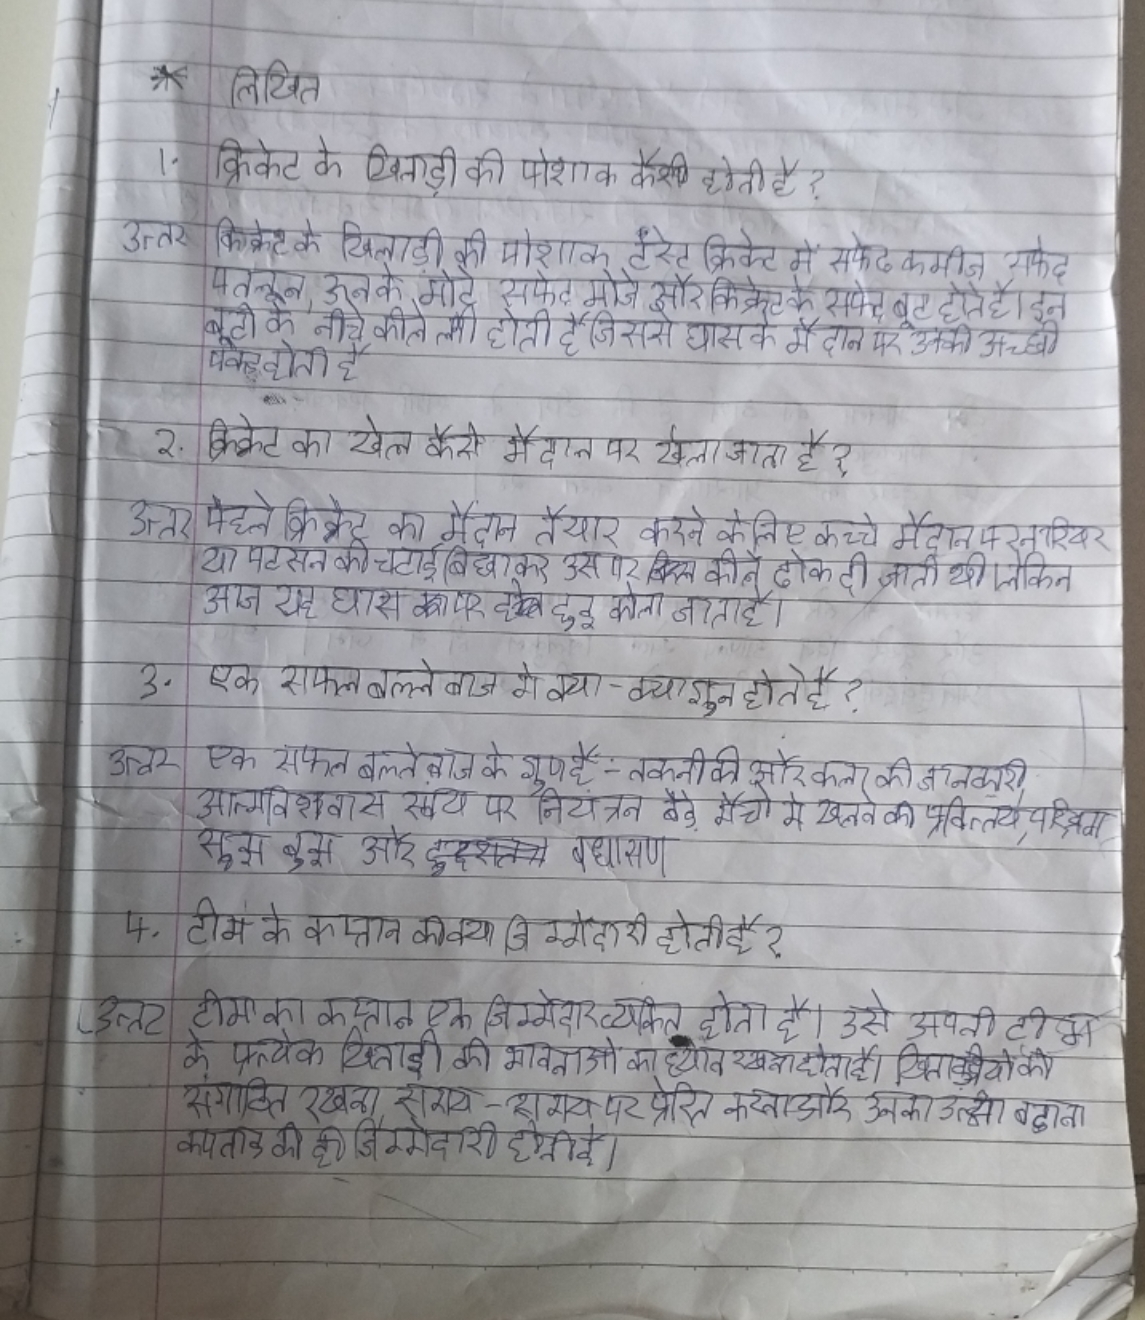 * लिखित
1. क्रिकेट के खिलाड़ी की पोशाक कैसी होती है?
उत्तर क्रिकेट के खिलाड़ी की पोशाक टैस्ट क्रिकेट में सफेद कमीज, सफेद
पतलून, ऊनके मोटे सफेद मोजे और क्रिकेट के सफेद बूट होते है। इन
बूटो के नीचे कीले लगी होती है जिससे घास के मैदान पर उनकी अच्छी
पकड़ होती है
2. क्रिकेट का खेल कैसे मैदान पर खेला जाता है?
उत्तर पहले क्रिकेट का मैदान तैयार करने के लिए कच्चे मैदान पर नारियर
या पटसन की चटाई बिछाकर उस पर कीले ठोक दी जाती थी लेकिन
आज यह घास पर हुइ केला जाता है।
3. एक सफल बल्लेबाज मे क्या-क्या गुन होते है?
उत्तर एक सफल बल्लेबाज के गुण है - तकनीकी और कला की जानकारी,
आत्मविशवास स्वंय पर नियंत्रन बड़े मैचो मे खलने की परिश्रम,
सुझ बुझ और
4. टीम के कप्तान की क्या जिम्मेदारी होती है?
उत्तर टीम का कप्तान एक जिम्मेदार व्यकित होता है। उसे अपनी टीम
के प्रत्येक खिलाड़ी की भावनाओ का ध्यान रखना होता है। खिलाड़ीयो को
संगठित रखना, समय-समय पर प्रेरित करना और उनका बढ़ाना
की ही जिम्मेदारी होती है।